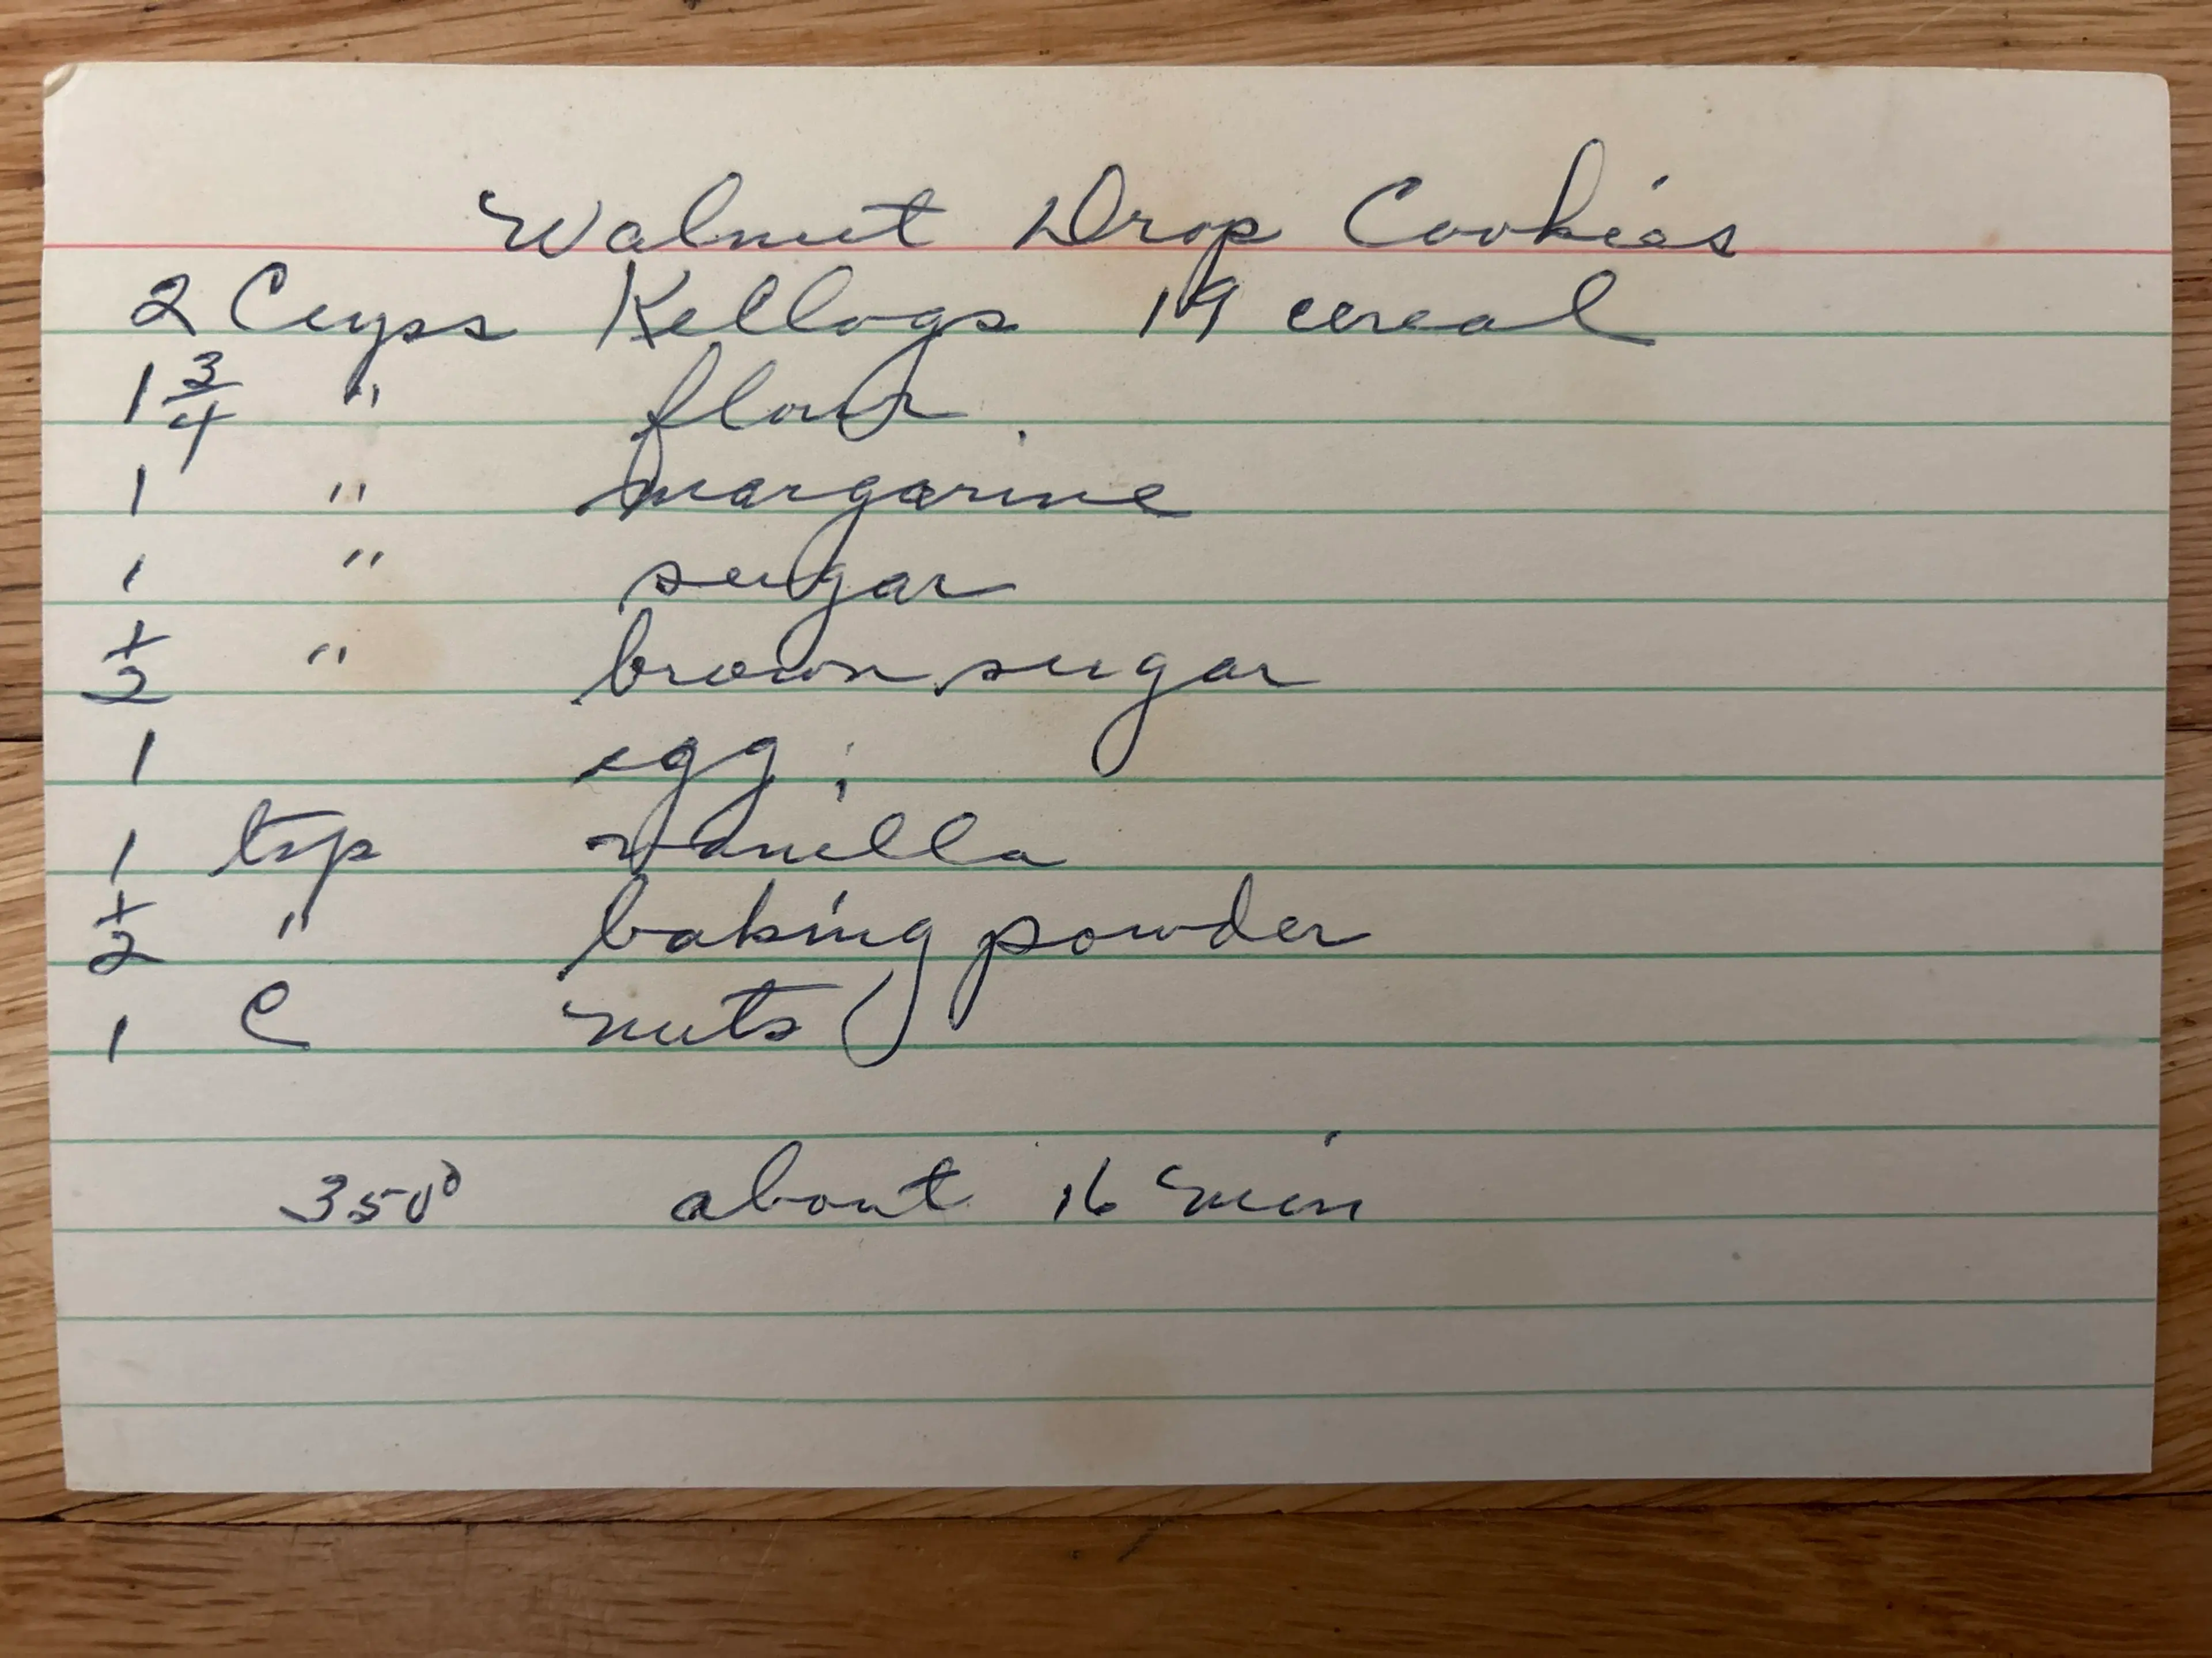 Walnut Drop Cookies
2 Cups Kellogs 19 cereal
1 3/4 " flour
1 " margarine
1 " sugar
1/2 " brown sugar
1 egg
1 tsp vanilla
1/2 " baking powder
1 C nuts
350° about 16 min